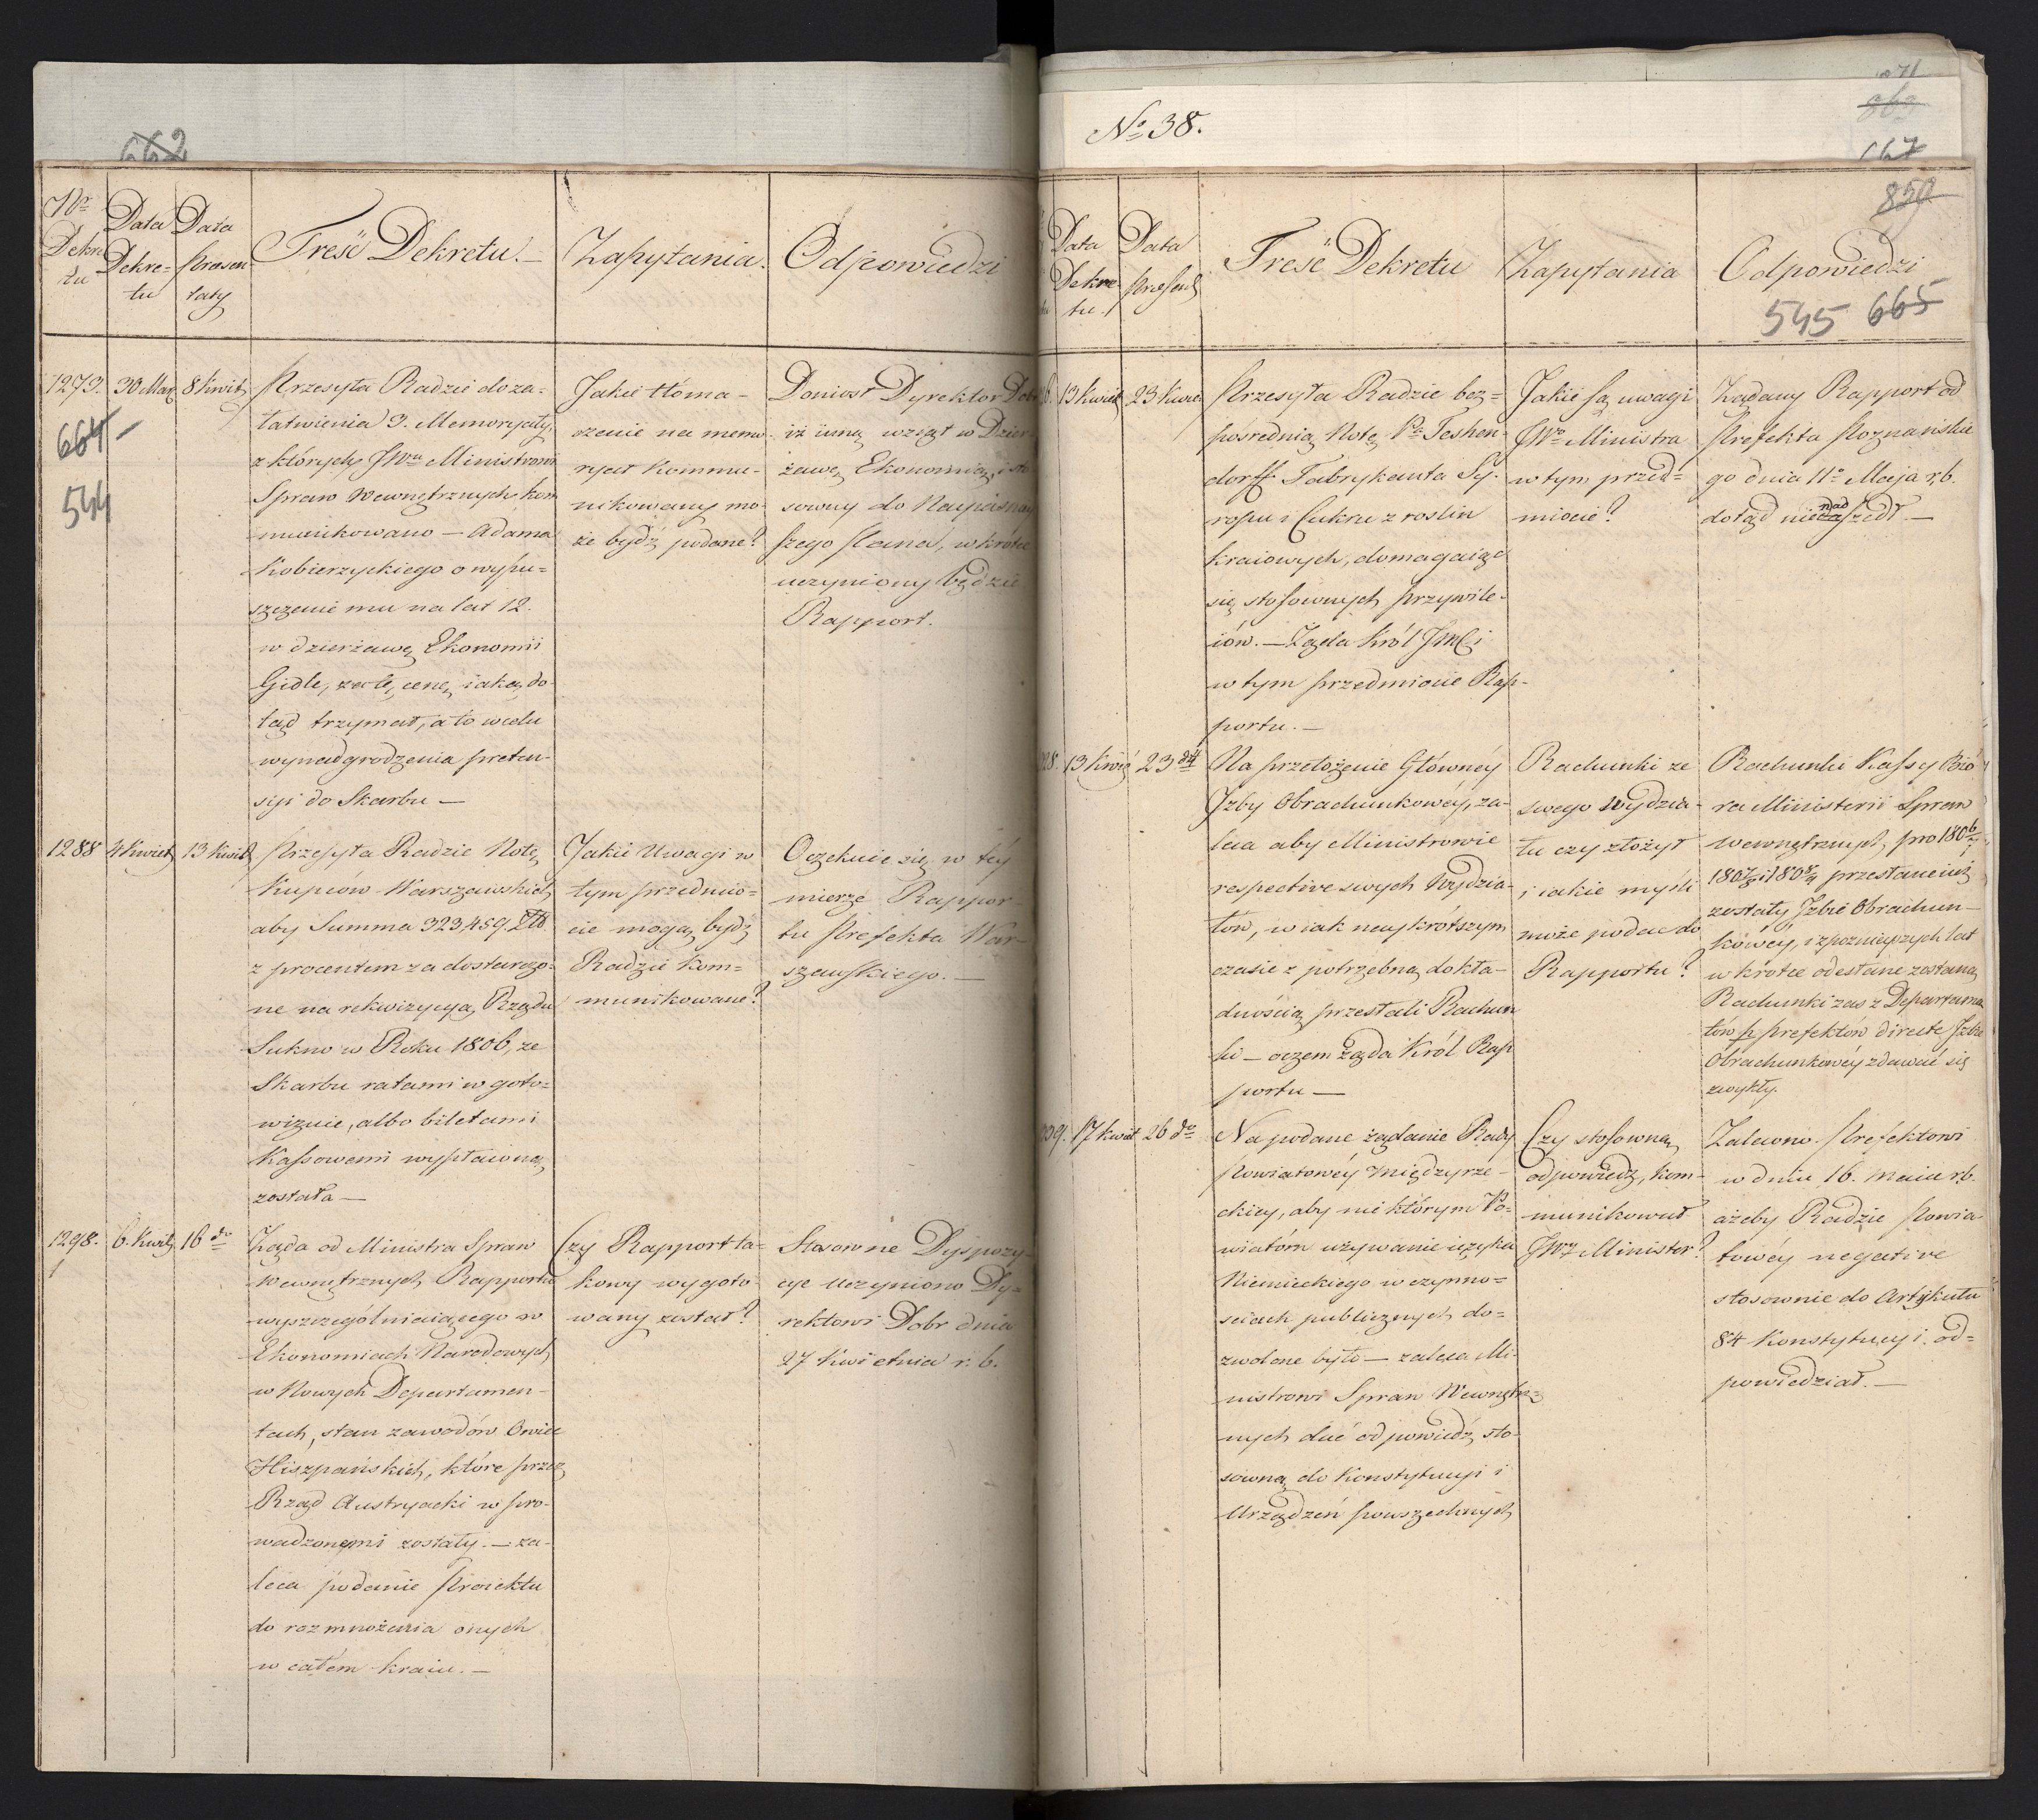 662
Nro Dekretu
Data Dekretu
Data Prasentaty
Treść Dekretu. —
Zapytania.
Odpowiedzi
1279.
30 Mar.
8 Kwiet.
664 —
544
Przesyła Radzie do za=
łatwienia 3. Memoryały,
z których JWu Ministrowi
Spraw Wewnętrznych kom
munikowano — Adama
Kobierzyckiego o wypu=
szczenie mu na lat 12.
w dzierżawę Ekonomii
Gidle, za tę cenę iaką do-
tąd trzymał, a to w celu
wynadgrodzenia preten-
syi do Skarbu —
Jakie tłoma-
czenie na memo-
ryał kommu-
nikowany mo-
że bydź podane?
Doniosł Dyrektor Dobr
iż inną wziął w Dzier-
żawę Ekonomią, i sto
sowny do Nayiaśniey
szego Pana, w krótce
uczyniony będzie
Rapport.
1288
4 Kwiet.
13 Kwiet.
Przesyła Radzie Notę
Kupców Warszawskich
aby Summa 323,459. Złtt
z procentem za dostarczo-
ne na rekwizycyą Rządu
Sukno w Roku 1806, ze
Skarbu ratami w goto=
wiznie, albo biletami
Kassowemi wypłaconą
została —
Jakie Uwagi w
tym przedmio=
cie mogą bydź
Radzie kom=
munikowane?
Oczekuie się w téy
mierze Rappor-
tu Prefekta War-
szawskiego. —
1298.
6. Kwiet.
16 do
Żąda od Ministra Spraw
Wewnętrznych Rapportu
wyszczególniaiącego w
Ekonomiach Narodowych
w Nowych Departamen-
tach, stan zawodów Owiec
Hiszpańskich, które przez
Rząd Austryacki w pro-
wadzonemi zostały. — za-
leca podanie Proiektu
do rozmnożenia onych
w całem kraiu. —
Czy Rapport ta-
kowy wygoto-
wany został?
Stosowne Dyspozy-
cye uczyniono Dy=
rektowi Dobr dnia
27 Kwietnia r. b.
No 38.
871
869
667
850
Data Dekretu.
Data Præsent.
Treść Dekretu
Zapytania
Odpowiedzi
545 665
13 Kwiet.
23 Kwiet.
Przesyła Radzie bez=
pośrednią Notę Pa Teshen-
dorff Fabrykanta Sy-
ropu i Cukru z roslin
kraiowych, domagaiąc
się stosownych przywile-
iów. — Żąda Król JMCi
w tym przedmiocie Rap-
portu. —
Jakie są uwagi
JWo Ministra
w tym przed=
miocie?
Żądany Rapport od
Prefekta Poznańskie
go dnia 11o Maja r.b.
dotąd nie nadszedł —
28.
13 Kwie.
23 do
Na przełożenie Główney
Jzby Obrachunkowéy, za-
leca aby Ministrowie
respective swych Wydzia-
łów, w iak naykrótszym
czasie z potrzebną dokła-
dnością przesłali Rachun
ki — oczem żąda Król Rap
portu —
Rachunki ze
swego Wydzia-
łu czy złożył
i iakie myśli
może podac do
Rapportu?
Rachunki Kassy Bió
ra Ministerii Spraw
Wewnętrznych, pro 1806/7
1807/8 i 1808/9 przesłane iuż
zostały Jzbie Obrachun-
kowéy, i z poznieyszych lat
w krotce odesłane zostaną
Rachunki zas z Departamen
tów p Prefektów directe Jzbie
Obrachunkowéy zdawać się
zwykły.
309.
17 Kwiet
26 do
Na podane żądanie Rady
Powiatowéy Międzyrze-
ckiey, aby niektórym Po-
wiatóm używanie ięzyka
Niemieckiego w czynno=
ściach publicznych do=
zwolone było — zaleca Mi-
nistrowi Spraw Wewnętrz=
nych dać odpowiedź sto-
sowną do Konstytucyi i
Urządzeń powszechnych
Czy stosowną
odpowiedź, kom-
munikował
JWy Minister?
Zalecono Prefektowi
w dniu 16. Maia r.b.
ażeby Radzie Powia-
towéy negative
stosownie do Artykułu
84 Konstytucyi. od=
powiedział. —